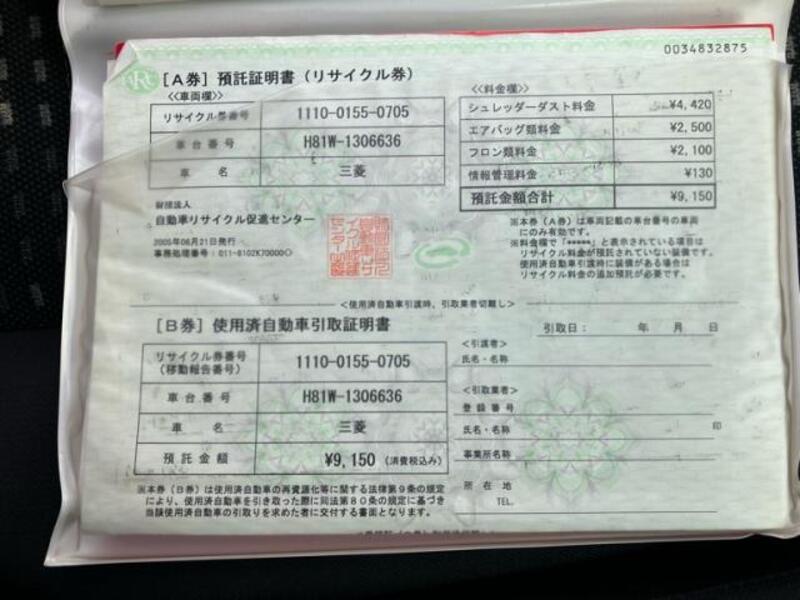 0034832875
[A券] 預託証明書 (リサイクル券)
<<車両欄>>
リサイクル券番号 1110-0155-0705
車台番号 H81W-1306636
車名 三菱
財団法人
自動車リサイクル促進センター
2005年06月21日発行
事務処理番号：011-8102K70000○
<<料金欄>>
シュレッダーダスト料金 ¥4,420
エアバッグ類料金 ¥2,500
フロン類料金 ¥2,100
情報管理料金 ¥130
預託金額合計 ¥9,150
※本券（A券）は車両記載の車台番号の車両
にのみ有効です。
※料金欄で「*****」と表示されている項目は
リサイクル料金が預託されていない装備です。
使用済自動車引渡時に装備がある場合は
リサイクル料金の追加預託が必要です。
<使用済自動車引渡時、引取業者切離し>
[B券] 使用済自動車引取証明書
リサイクル券番号
(移動報告番号) 1110-0155-0705
車台番号 H81W-1306636
車名 三菱
預託金額 ¥9,150 (消費税込み)
※本券（B券）は使用済自動車の再資源化等に関する法律第9条の規定
により、使用済自動車を引き取った際に同法第80条の規定に基づき
当該使用済自動車の引取りを求めた者に交付する書面となります。
引取日： 年 月 日
<引渡者>
氏名・名称
<引取業者>
登録番号
氏名・名称 印
事業所名称
所在地
TEL.